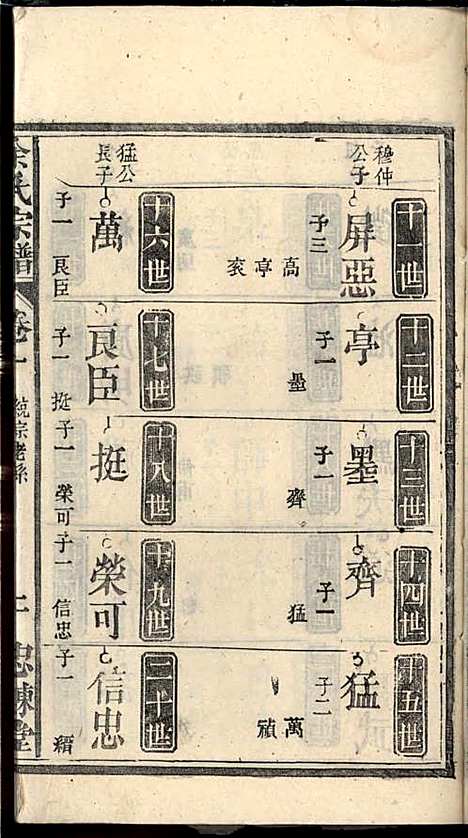 十一世
穆仲
公子
屏惡
子三
高
亭
十二世
亭
子一
墨
十三世
墨
子一
齊
十四世
齊
子一
猛
十五世
猛
子二
萬
十六世
猛公
長子
萬
子一
良臣
十七世
良臣
子一
挺
十八世
挺
子一
榮可
十九世
榮可
子一
信忠
二十世
信忠
子一
余氏宗譜
卷一
統宗老系